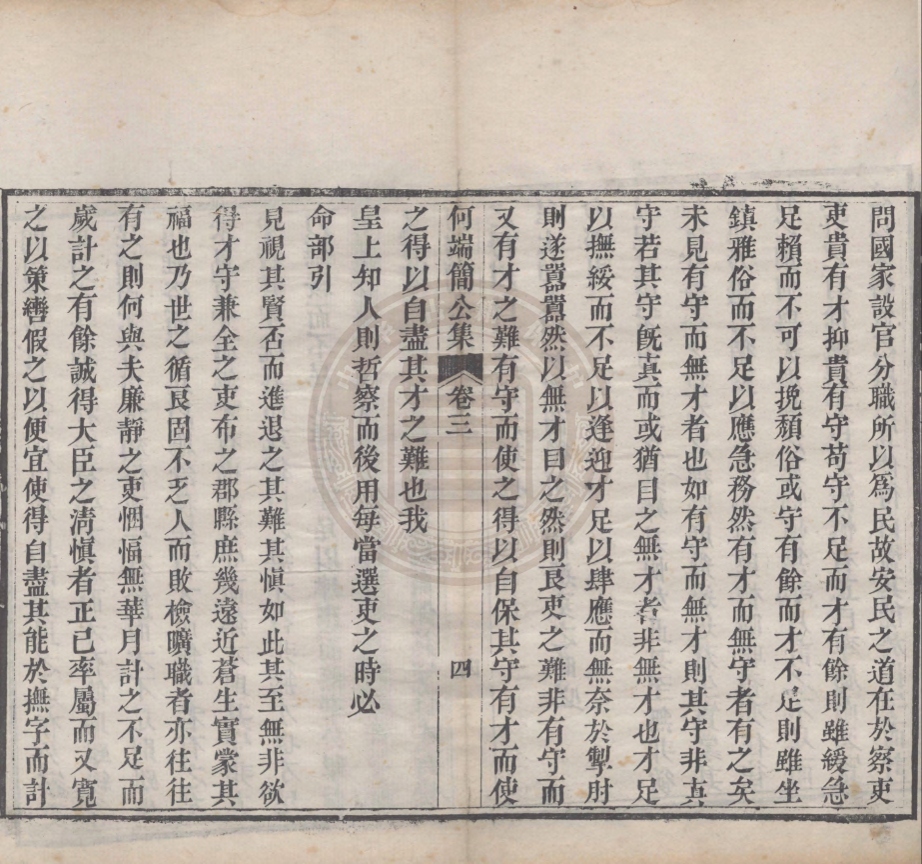 問國家設官分職所以爲民故安民之道在於察吏
吏貴有才抑貴有守苟守不足而才有餘則雖緩急
足賴而不可以挽頹俗或守有餘而才不足則雖坐
鎮雅俗而不足以應急務然有才而無守者有之矣
未見有守而無才者也如有守而無才則其守非眞
守若其守旣眞而或猶目之無才者非無才也才足
以撫綏而不足以逢迎才足以肆應而無奈於掣肘
則遂囂囂然以無才目之然則良吏之難非有守而
又有才之難有守而使之得以自保其守有才而使
何端簡公集 卷三 四
之得以自盡其才之難也我
皇上知人則哲察而後用每當選吏之時必
命部引
見視其賢否而進退之其難其愼如此其至無非欲
得才守兼全之吏布之郡縣庶幾遠近蒼生實蒙其
福也乃世之循良固不乏人而敗檢曠職者亦往往
有之則何與夫廉靜之吏悃愊無華月計之不足而
歲計之有餘誠得大臣之淸愼者正己率屬而又寬
之以策轡假之以便宜使得自盡其能於撫字而計